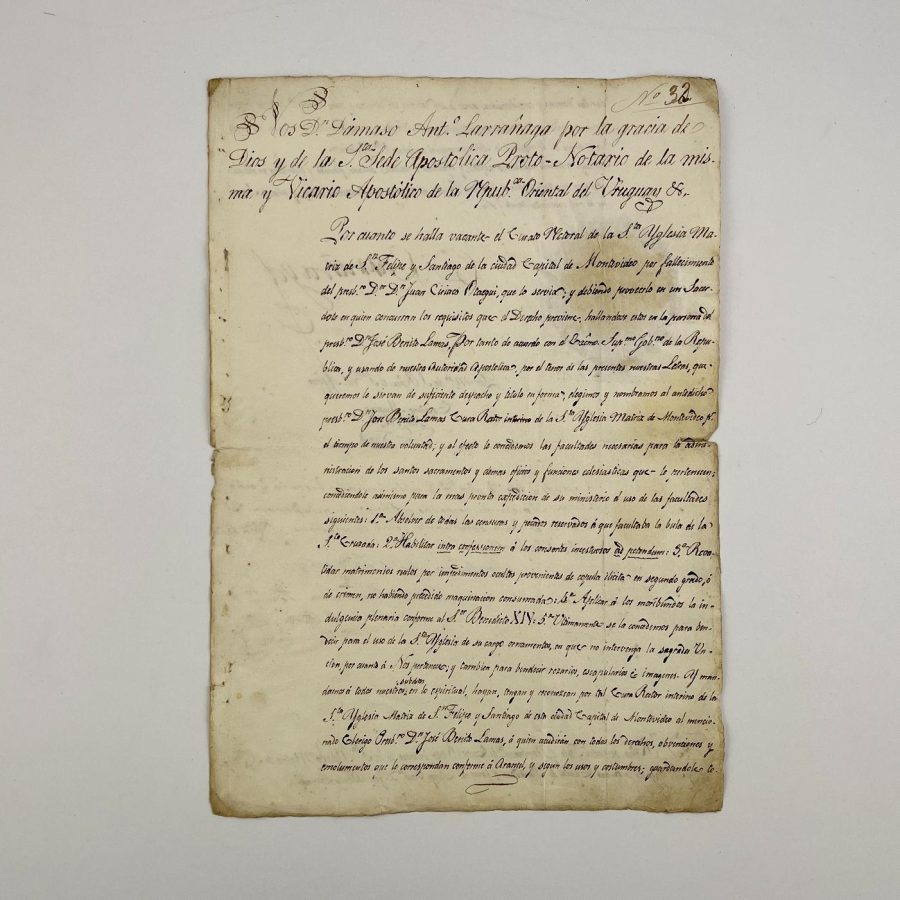 No 32
Nos Dn Dámaso Anto Larrañaga por la gracia de
Dios y de la Sta Sede Apostólica Proto-Notario de la mis-
ma y Vicario Apostólico de la Repubca Oriental del Uruguay &.
Por cuanto se halla vacante el Curato Rectoral de la Sta Yglesia Ma-
triz de Sn Felipe y Santiago de la ciudad Capital de Montevideo por fallecimiento
del presbro Dor Dn Juan Ciriaco Otaegui, que lo servia; y debiendo proveerlo en un Sacer-
dote en quien concurran los requisitos que el Derecho previene, hallandose estos en la persona del
presbro Dn José Benito Lamas, Por tanto de acuerdo con el Excmo. Supmo Gobno de la Repu-
blica, y usando de nuestra Autoridad Apostolica, por el tenor de las presentes nuestras Letras, que
queremos le sirvan de suficiente despacho y titulo en forma, elegimos y nombramos al antedicho
presbro Dn Jose Benito Lamas Cura Rector interino de la Sta Yglesia Matriz de Montevideo pr
el tiempo de nuestra voluntad; y al efecto le concedemos las facultades necesarias para la admi-
nistracion de los santos sacramentos y demas oficios y funciones eclesiasticas que le pertenecen;
concediendole asimismo para la mas pronta expedicion de su ministerio el uso de las facultades
siguientes: 1a Absolver de todas las censuras y pecados reservados á que facultaba la bula de la
Sta Cruzada: 2a Habilitar intra confessionem á los consortes incestuosos ad petendum: 3a Reva-
lidar matrimonios nulos por impedimentos ocultos provenientes de copula ilicita en segundo grado, ó
de crimen, no habiendo precedido maquinacion consumada: 4a Aplicar á los moribundos la in-
dulgencia plenaria conforme al Sor Benedicto XIV: 5a Ultimamente se la concedemos para ben-
decir para el uso de la Sta Yglesia de su cargo ornamentos, en que no intervenga la sagrada Un-
cion, por cuanto á Nos pertenece; y tambien para bendecir rozarios, escapularios é imagenes. Y man-
damos á todos nuestros subditos en lo espiritual, hayan, tengan y reconozcan por tal Cura Rector interino de la
Sta Yglesia Matriz de Sn Felipe y Santiago de esta ciudad Capital de Montevideo al mencio-
nado Clerigo Presbro Dn José Benito Lamas, á quien acudirán con todos los derechos, obvenciones y
emolumentos que le correspondan conforme á Arancel, y segun los usos y costumbres; guardandole to-